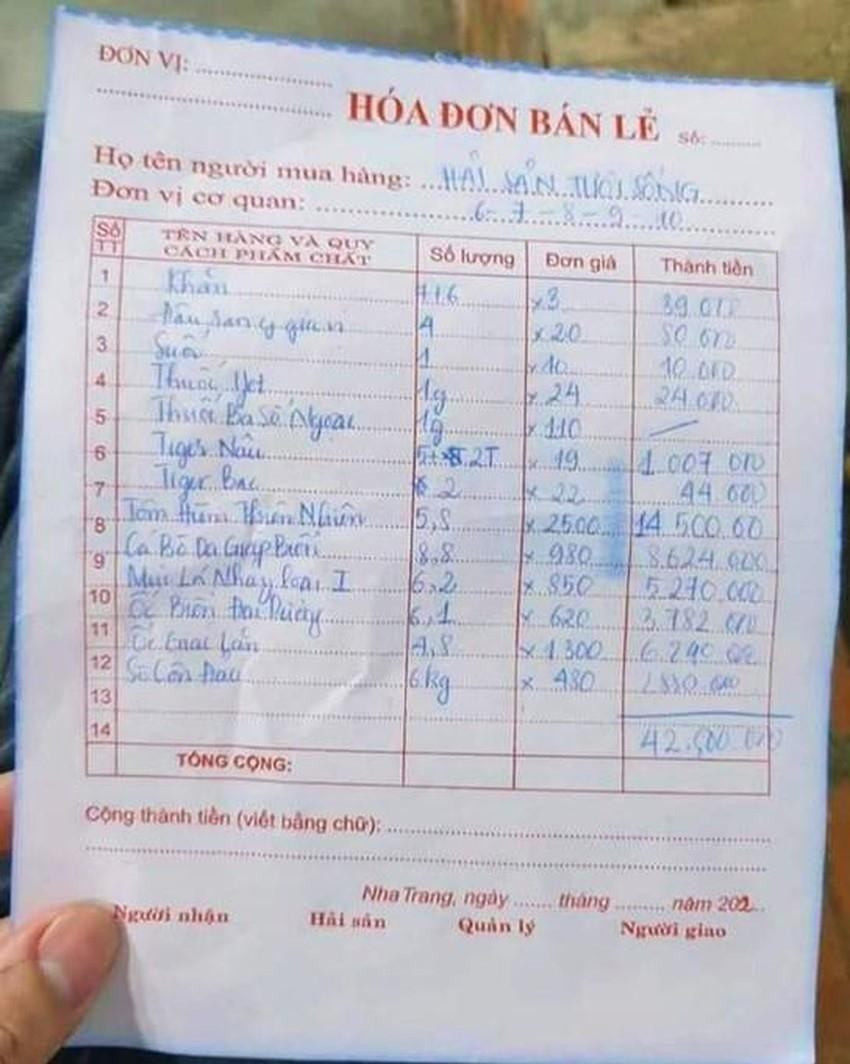 ĐƠN VỊ: ..................
..................
HÓA ĐƠN BÁN LẺ Số: .........
Họ tên người mua hàng: HẢI SẢN TƯƠI SỐNG
Đơn vị cơ quan: 6-7-8-9-10
Số TT TÊN HÀNG VÀ QUY CÁCH PHẨM CHẤT Số lượng Đơn giá Thành tiền
1 Khăn 7+6 x3 39.000
2 Đậu, rang gia vị 4 x20 80.000
3 Suối 1 x10 10.000
4 Thuốc Jet 1g x 24 24.000
5 Thuốc Ba Số Ngoại 1g x 110 —
6 Tiger Nâu 2T x 19 1.007 000
7 Tiger Bạc 2 x 22 44 000
8 Tôm Hùm Thiên Nhiên 5,8 x 2500 14 500.00
9 Cá Bò Da Giáp Biển 8,8 x 980 8.624.000
10 Mực Lá Nhảy loại I 6,2 x 850 5.270.000
11 Ốc Biển Đại Dương 6,1 x 620 3.782 000
12 Ốc 4,8 x 1300 6.240.00
13 Sò Côn Đảo 6kg x 480 2880.000
14 42.500.000
TỔNG CỘNG:
Cộng thành tiền (viết bằng chữ): ..................
..................
Nha Trang, ngày ....... tháng ......... năm 202...
Người nhận Hải sản Quản lý Người giao